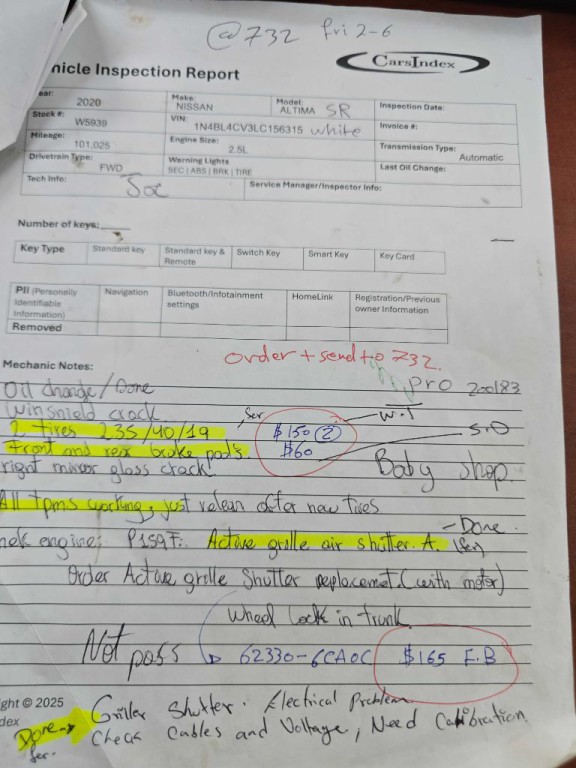 @732 fri 2-6
CarsIndex
hicle Inspection Report
ear: 2020 Make NISSAN Model: ALTIMA SR Inspection Date:
Stock #: W5939 VIN: 1N4BL4CV3LC156315 white Invoice #:
Mileage: 101,025 Engine Size: 2.5L Transmission Type: Automatic
Drivetrain Type: FWD Warning Lights SEC | ABS | BRK | TIRE Last Oil Change:
Tech Info: Joe Service Manager/Inspector Info:
Number of keys:
Key Type Standard key Standard key & Remote Switch Key Smart Key Key Card
PII (Personally Identifiable Information) Removed Navigation Bluetooth/Infotainment settings HomeLink Registration/Previous owner Information
order + send to 732.
Mechanic Notes:
PRO 200183
Oil change / Done
Winsheild crack
2 tires 235/40/19 Ser $150 (2) W.T
Front and rear brake pads. $60 S.O
right mirror glass crack! Body shop.
All tpms working, just relean after new tires
- Done.
hek engine: P159F: Active grille air shutter. A. (Ser)
Order Active grille Shutter replacemet. (with motor)
Wheel lock in trunk.
Not pass 62330-6CA0C $165 E.B
ght © 2025
dex
Griller Shutter. Electrical Problem
Done → Check Cables and Voltage, Need Calibration.
Ser.